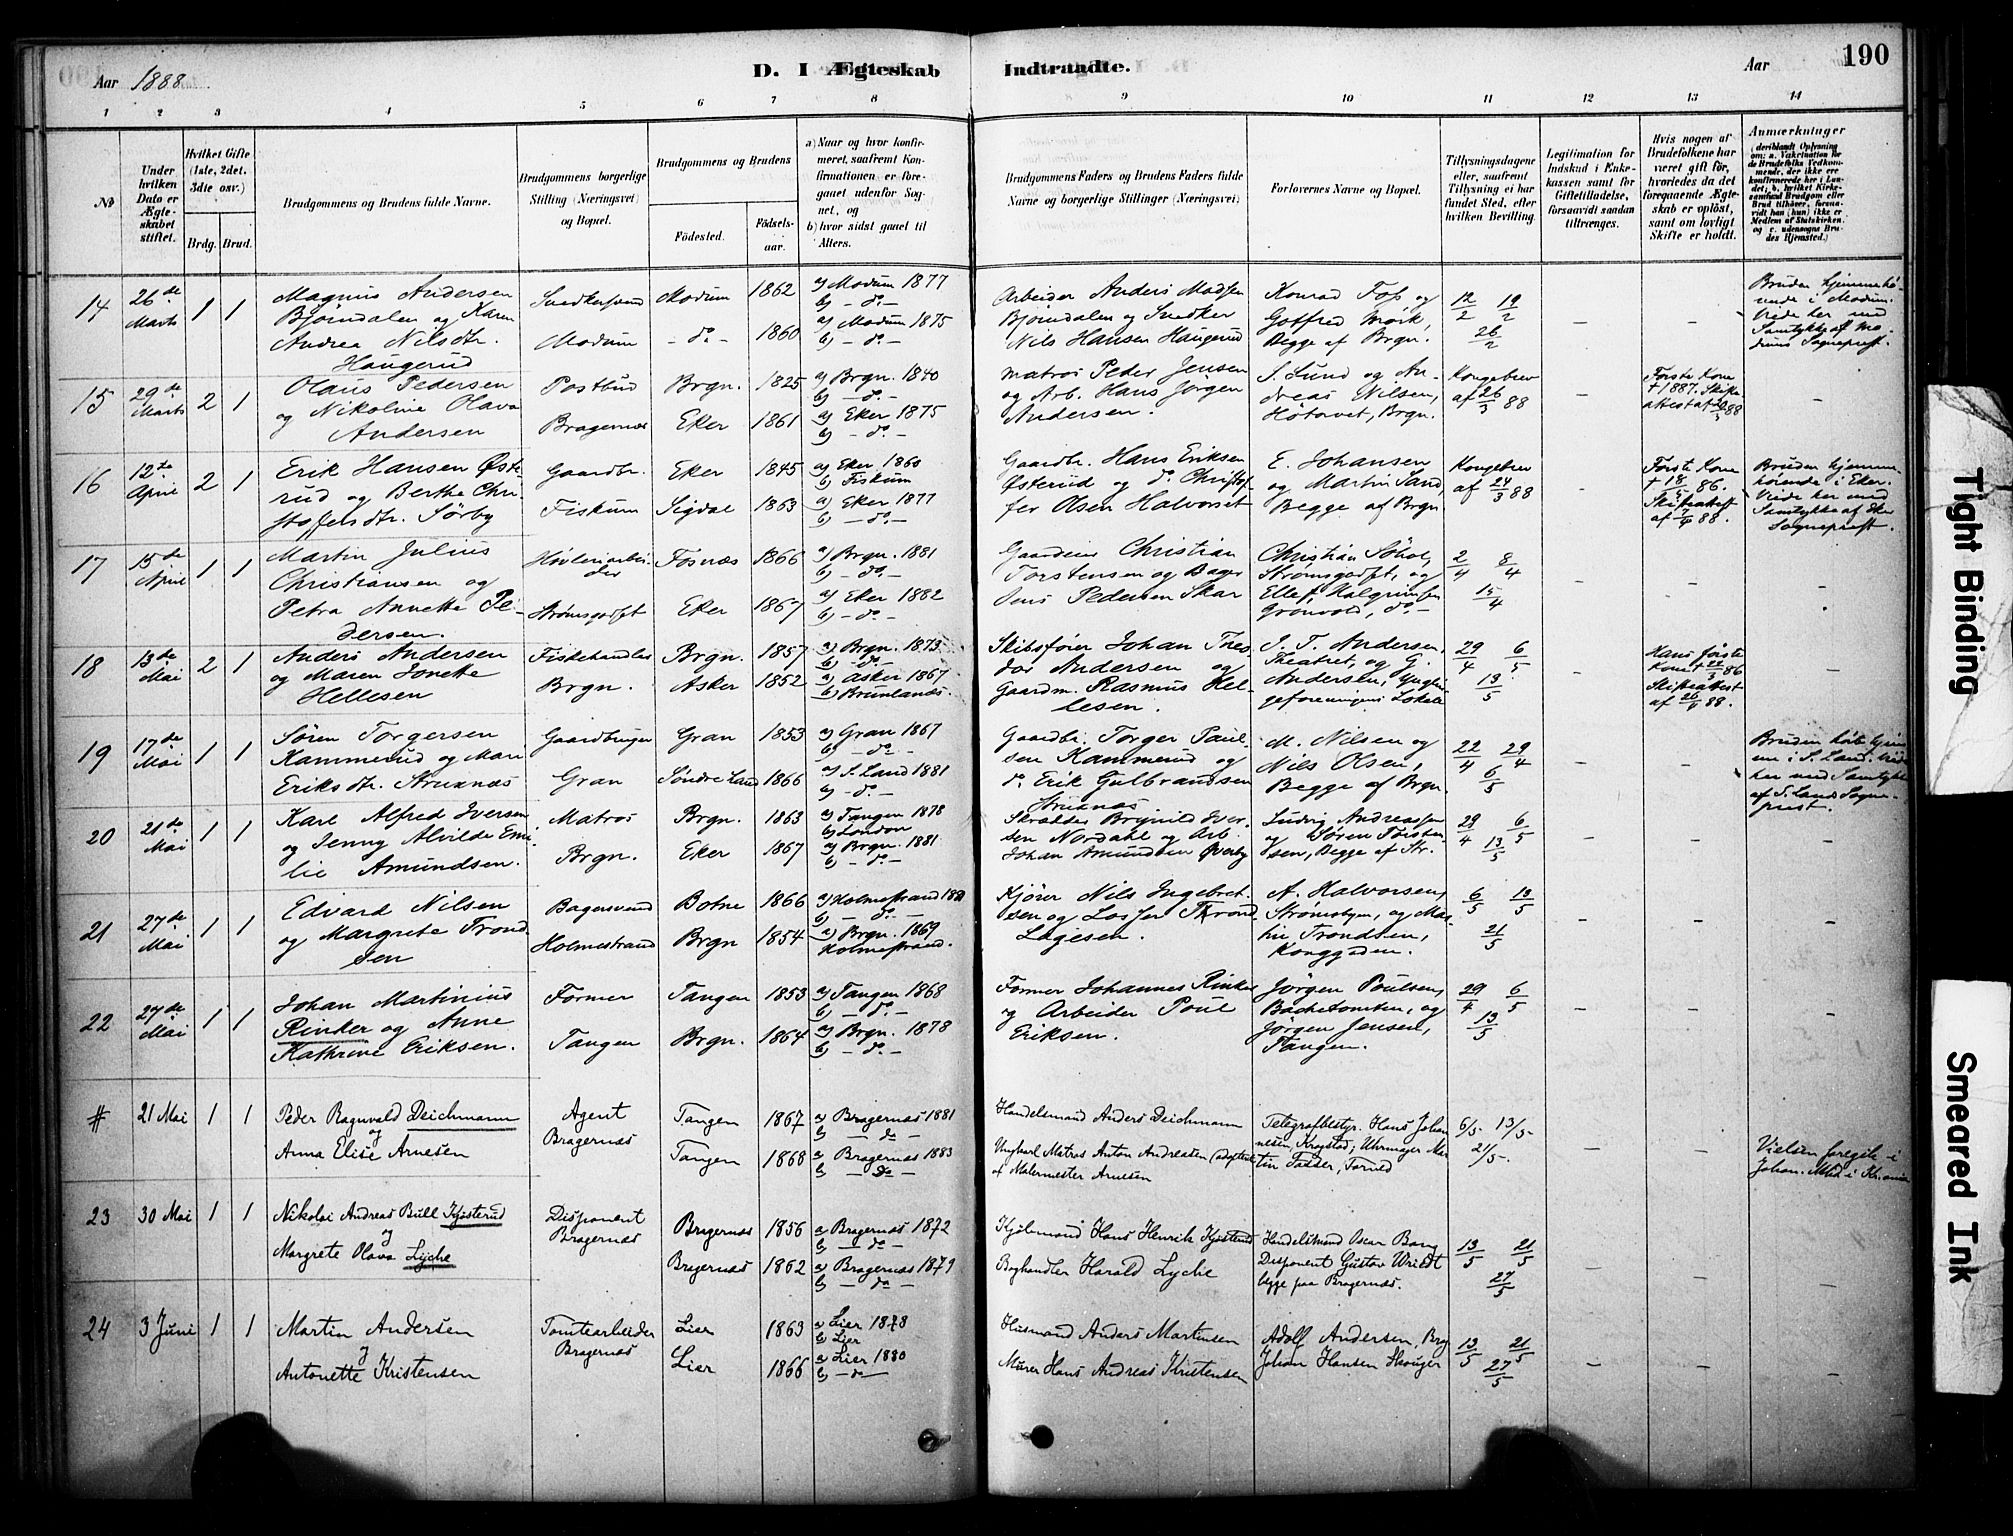 Aar 1888
D. I Ægteskab Indtraadte.
Aar 190
1 2 3 4 5 6 7 8 9 10 11 12 13 14
No
Under hvilken Dato er Ægteskabet stiftet.
Hvilket Gifte (1ste, 2det, 3die osv.)
Brdg. Brud.
Brudgommens og Brudens fulde Navne.
Brudgommens borgerlige Stilling (Næringsvei) og Bopæl.
Brudgommens og Brudens
Fødested.
Fødselsaar.
a) Naar og hvor konfirmeret, saafremt Konfirmationen er foreganet udenfor Sognet, og
b) hvor sidst ganet til Alters.
Brudgommens Faders og Brudens Faders fulde Navne og borgerlige Stillinger (Næringsvei)
Forlovernes Navne og Bopæl.
Tillysningsdagene eller, saafremt Tillysning ei har fundet Sted, efter hvilken Bevilling.
Legitimation for Indskud i Enkekassen samt for Giftetilladelse, forsaavidt saadan tiltrænges.
Hvis nogen af Brudefolkene har været gift før, hvorledes da det foregaaende Ægteskab er opløst, samt om lovligt Skifte er holdt.
Anmærkninger
14 26de Marts 1 1
Magnus Andersen
Bjørndalen og Karen
Andrea Nilsdtr.
Haugerud
Snedkersvend
Modum
Modum 1862 a) Modum 1877
b) - do -
- do - 1860 a) Modum 1875
b) - do -
Arbeider Anders Madsen
Bjørndalen og Snedker
Nils Hansen Haugerud
Konrad Foss og
Gotfred Mørk,
Begge af Brgn.
12/2 19/2
26/2
- -
Bruden hjemmehørende i Modum.
Viede her med
Samtykke af Modums Sognepræst.
15 29de Marts 2 1
Olaus Pedersen
og Nikoline Olava
Andersen
Postbud
Bragernæs
Brgn. 1825 a) Brgn. 1840
b) - do -
Eker 1861 a) Eker 1875
b) - do -
Matros Peder Jensen
og Arb. Hans Jørgen
Andersen.
S. Lund og Andreas Nilsen,
Høtorvet, Brgn.
Kongebrev
af 26/3 88
-
Første Kone
† 1887. Skifteattest af 88
-
16 12te April 2 1
Erik Hansen Østerud og Berthe Christofersdtr. Sørby
Gaardbr.
Fiskum
Eker 1845 a) Eker 1860
b) Fiskum
Sigdal 1863 a) Eker 1877
b) - do -
Gaardbr. Hans Eriksen
Østerud og do Christoffer Olsen Halvorset
E. Johansen
og Martin Sand,
Begge af Brgn.
Kongebrev
af 24/3 88
-
Første Kone
† 18/5 86.
Skifteattest
af 7/4 88.
Bruden hjemmehørende i Eker.
Viede her med
Samtykke af Eker
Sognepræst.
17 15de April 1 1
Martin Julius
Christiansen og
Petra Annette Pedersen.
Høvleriarbeider
Strømsgodset
Fosnæs 1866 a) Brgn. 1881
b) - do -
Eker 1867 a) Eker 1882
b) - do -
Gaardeier Christian
Torstensen og Bager
Jens Pedersen Skar
Christian Søhol,
Strømsgodset, og
Ellef Halgrimsen
Grønvold, do -
2/4 8/4
15/4
- - -
18 13de Mai 2 1
Anders Andersen
og Maren Jonette
Hellesen
Fiskehandler
Brgn.
Brgn. 1857 a) Brgn. 1873
b) - do -
Asker 1852 a) Asker 1867
b) Brunlanæs.
Skibsfører Johan Thesdor Andersen og
Gaardm. Rasmus Hellesen.
J. T. Andersen,
Theatret, og G.
Andersen, Ynglingeforeningens Lokale
29/4 6/5
13/5
Hans første
Kone † 22/3 86
Skifteattest
af 26/4 88.
19 17de Mai 1 1
Søren Torgersen
Kammerud og Mari
Eriksdtr. Struxnæs
Gaardbruger
Gran
Gran 1853 a) Gran 1867
b) - do -
Søndre Land 1866 a) S. Land 1881
b) - do -
Gaardbr. Torger Paulsen Kammerud og
do Erik Gulbrandsen
Struxnæs
M. Nilsen og
Nils Olsen,
Begge af Brgn.
22/4 29/4
6/5
- -
af S. Lands Sognepræst.
20 21de Mai 1 1
Karl Alfred Iversen
og Jenny Alvilde Emilie Amundsen.
Matros
Brgn.
Brgn. 1863 a) Tangen 1878
b) London
Eker 1867 a) Brgn. 1881
b) - do -
Skrædder Brynild Iversen Nordahl og Arb.
Johan Amundsen Øverby
Ludvig Andreassen
og Søren Torstensen, Begge af Str.
29/4 6/5
13/5
- - -
21 27de Mai 1 1
Edvard Nilsen
og Margrete Trondsen
Bagersvend
Holmestrand
Botne 1866 a) Holmestrand
b) - do -
Brgn 1854 a) Brgn. 1869
Holmestrand.
Kjører Nils Ingebretsen og Losser Thrond
Lagesen.
A. Halvorsen,
Strømsbyen, og Martin Trondsen,
Konggaden.
6/5 13/5
21/5
- - -
22 27de Mai 1 1
Johan Martinius
Rinker og Anne
Kathrine Eriksen.
Former
Tangen
Tangen 1853 a) Tangen 1868
b) - do -
Brgn. 1864 a) Brgn. 1878
b) - do -
Former Johannes Rinker
og Arbeider Poul
Eriksen.
Jørgen Poulsen,
Bachetomten, og
Jørgen Jensen,
Tangen.
29/4 6/5
13/5
- - -
# 21 Mai 1 1
Peder Ragnvald Deichmann
og
Anna Elise Arnesen
Agent
Bragernæs
Tangen 1867 a) Bragernæs 1881
b - do -
Tangen 1868 a Bragernæs 1883
b - do -
Handelsmand Anders Deichmann
Ungkarl Matros Anton Andreasen (adopteret
af Malermester Arnesen
Telegrafbestyr. Hans Johannesen, Krogstad; Uhrmager Martin Fadser, Torvet
6/5 - 13/5 -
21/5 -
- -
Vielsen foregik i
Johan. i Kr.ania
23 30 Mai 1 1
Nikolai Andreas Bull Kjøsterud
og
Margrete Olava Lyche
Disponent
Bragernæs
Bragernæs 1856 a Bragernæs 1872
b - do -
Bragernæs 1862 a) Bragernæs 1879
b - do -
Kjøbmand Hans Henrik Kjøsterud
Boghandler Harald Lyche
Handelsmand Oscar Bang
Disponent Gustav Wriedt
begge paa Bragernæs.
13/5 21/5
27/5
- - -
24 3 Juni 1 1
Martin Andersen
og
Antonette Kristensen
Tomtearbeider
Bragernæs
Lier 1863 a Lier 1878
b Lier
Lier 1866 a) Lier 1880
b) - do -
Husmand Anders Martinsen
Murer Hans Andreas Kristensen
Adolf Andersen, Brag
Johan Hansen Skouger
13/5 21/5
27/5
- - -
Tight Binding
Smeared Ink